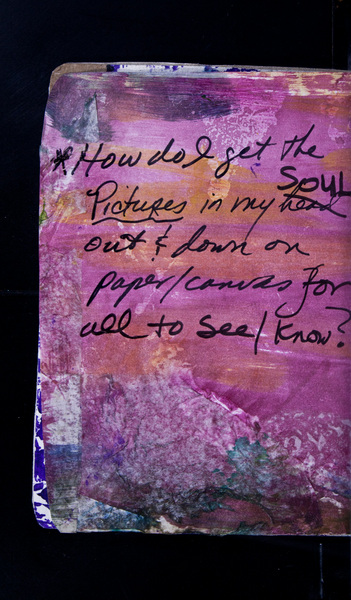 * How do I get the
SOUL
Pictures in my head
out & down on
paper/canvas for
all to see/know?